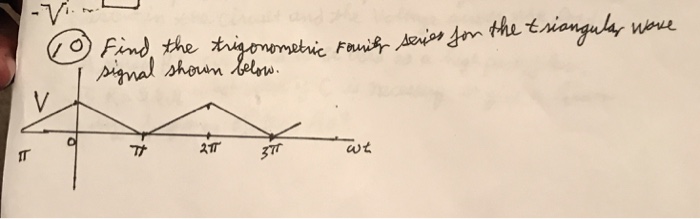 10 Find the trigonometric Fourier series for the triangular wave
signal shown below.
V
π 0 π 2π 3π ωt